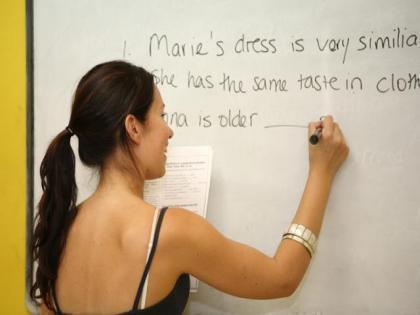 1. Marie's dress is very similia
She has the same taste in cloth
na is older